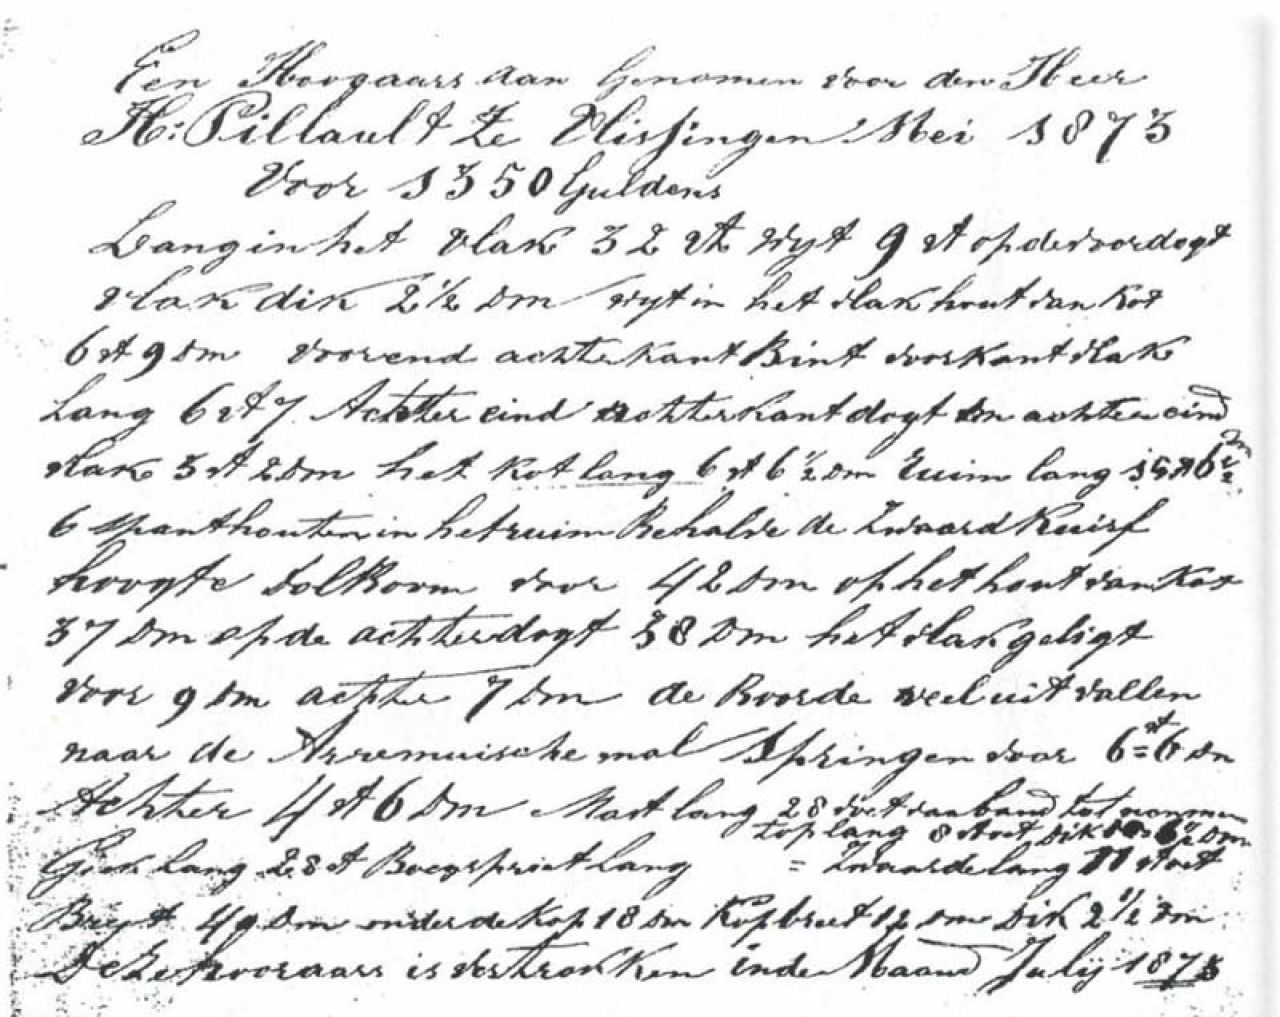 Een Hoogaars aan Genomen voor den Heer
H: Pillault te Vlissingen Mei 1873
Voor 1350 Guldens
Lang in het vlak 32 vt wyt 9 vt op de voordogt
vlak dik 2½ Dm wyt in het vlak hout van kot
6 vt 9 Dm voorend achterkant Bint voorkant vlak
Lang 6 vt 7 Achter eind achterkant dogt en achter eind
vlak 3 vt 2 Dm het kot lang 6 vt 6½ Dm Ruim lang 15 vt 6½ Dm
6 spanthouten in het ruim Behalve de Zwaard Kuirf
hoogte Dolboom voor 42 Dm op het hout van kot
37 Dm op de achterdogt 38 Dm het vlak geligt
voor 9 Dm achter 7 Dm de Boorde veel uit vallen
naar de Arremuische mal Springen voor 6 vt 6 Dm
Achter 4 vt 6 Dm Mast lang 28 voet van band tot
top lang 8 voet Dik 6½ Dm
Giek Lang 28 vt Boegspriet Lang = Zwaarde lang 11 voet
Breyt 49 Dm onder de kop 18 Dm Kop breet 12 Dm Dik 2½ Dm
Deze hoogaars is vertrokken in de Maand July 1873